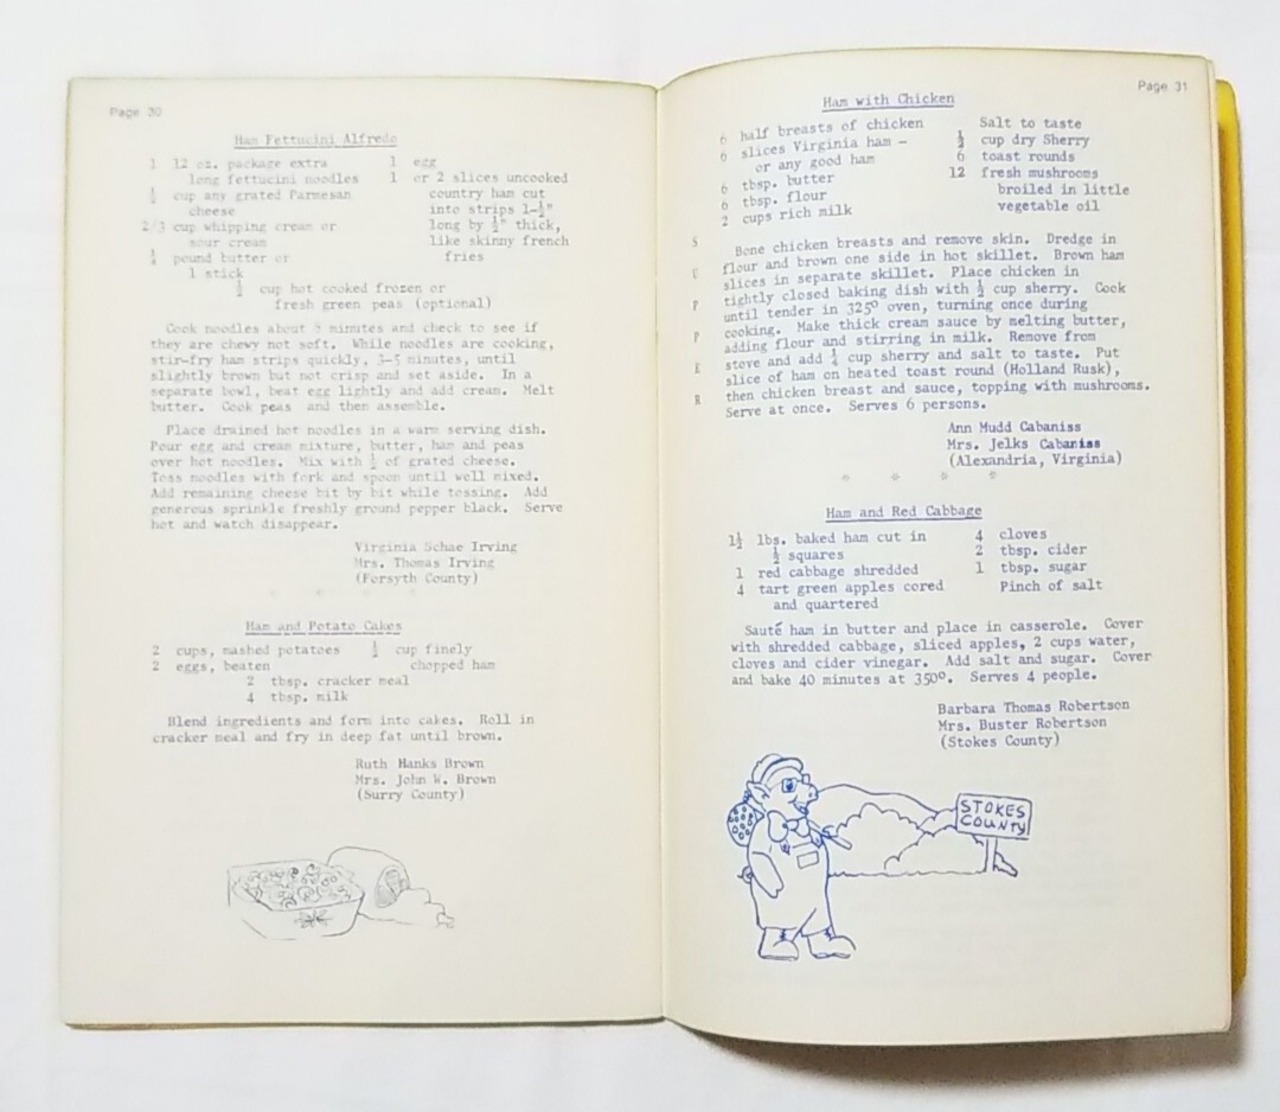 Page 30
Ham Fettucini Alfredo
1 12 oz. package extra
long fettucini noodles
½ cup any grated Parmesan
cheese
2/3 cup whipping cream or
sour cream
¼ pound butter or
1 stick
1 egg
1 or 2 slices uncooked
country ham cut
into strips 1-½"
long by ½" thick,
like skinny french
fries
½ cup hot cooked frozen or
fresh green peas (optional)
Cook noodles about minutes and check to see if
they are chewy not soft. While noodles are cooking,
stir-fry ham strips quickly, 3-5 minutes, until
slightly brown but not crisp and set aside. In a
separate bowl, beat egg lightly and add cream. Melt
butter. Cook peas and then assemble.
Place drained hot noodles in a warm serving dish.
Pour egg and cream mixture, butter, ham and peas
over hot noodles. Mix with ½ of grated cheese.
Toss noodles with fork and spoon until well mixed.
Add remaining cheese bit by bit while tossing. Add
generous sprinkle freshly ground pepper black. Serve
hot and watch disappear.
Virginia Schae Irving
Mrs. Thomas Irving
(Forsyth County)
* * * *
Ham and Potato Cakes
2 cups, mashed potatoes
2 eggs, beaten
½ cup finely
chopped ham
2 tbsp. cracker meal
4 tbsp. milk
Blend ingredients and form into cakes. Roll in
cracker meal and fry in deep fat until brown.
Ruth Hanks Brown
Mrs. John W. Brown
(Surry County)
Page 31
Ham with Chicken
6 half breasts of chicken
6 slices Virginia ham -
or any good ham
6 tbsp. butter
6 tbsp. flour
2 cups rich milk
Salt to taste
½ cup dry Sherry
6 toast rounds
12 fresh mushrooms
broiled in little
vegetable oil
S
U
P
P
E
R
Bone chicken breasts and remove skin. Dredge in
flour and brown one side in hot skillet. Brown ham
slices in separate skillet. Place chicken in
tightly closed baking dish with ½ cup sherry. Cook
until tender in 325° oven, turning once during
cooking. Make thick cream sauce by melting butter,
adding flour and stirring in milk. Remove from
stove and add ¼ cup sherry and salt to taste. Put
slice of ham on heated toast round (Holland Rusk),
then chicken breast and sauce, topping with mushrooms.
Serve at once. Serves 6 persons.
Ann Mudd Cabaniss
Mrs. Jelks Cabaniss
(Alexandria, Virginia)
* * * *
Ham and Red Cabbage
1½ lbs. baked ham cut in
½ squares
1 red cabbage shredded
4 tart green apples cored
and quartered
4 cloves
2 tbsp. cider
1 tbsp. sugar
Pinch of salt
Sauté ham in butter and place in casserole. Cover
with shredded cabbage, sliced apples, 2 cups water,
cloves and cider vinegar. Add salt and sugar. Cover
and bake 40 minutes at 350°. Serves 4 people.
Barbara Thomas Robertson
Mrs. Buster Robertson
(Stokes County)
STOKES
COUNTY